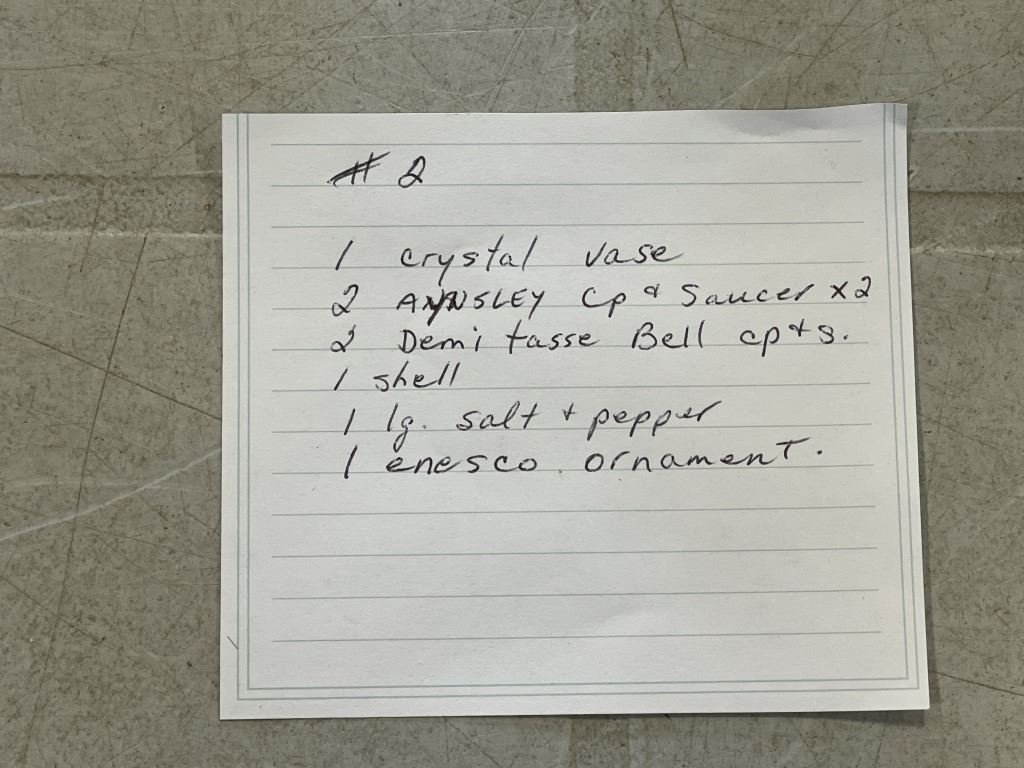 # 2
1 crystal vase
2 AYNSLEY Cp & Saucer x2
2 Demi tasse Bell cp + s.
1 shell
1 lg. salt + pepper
1 enesco ornament.